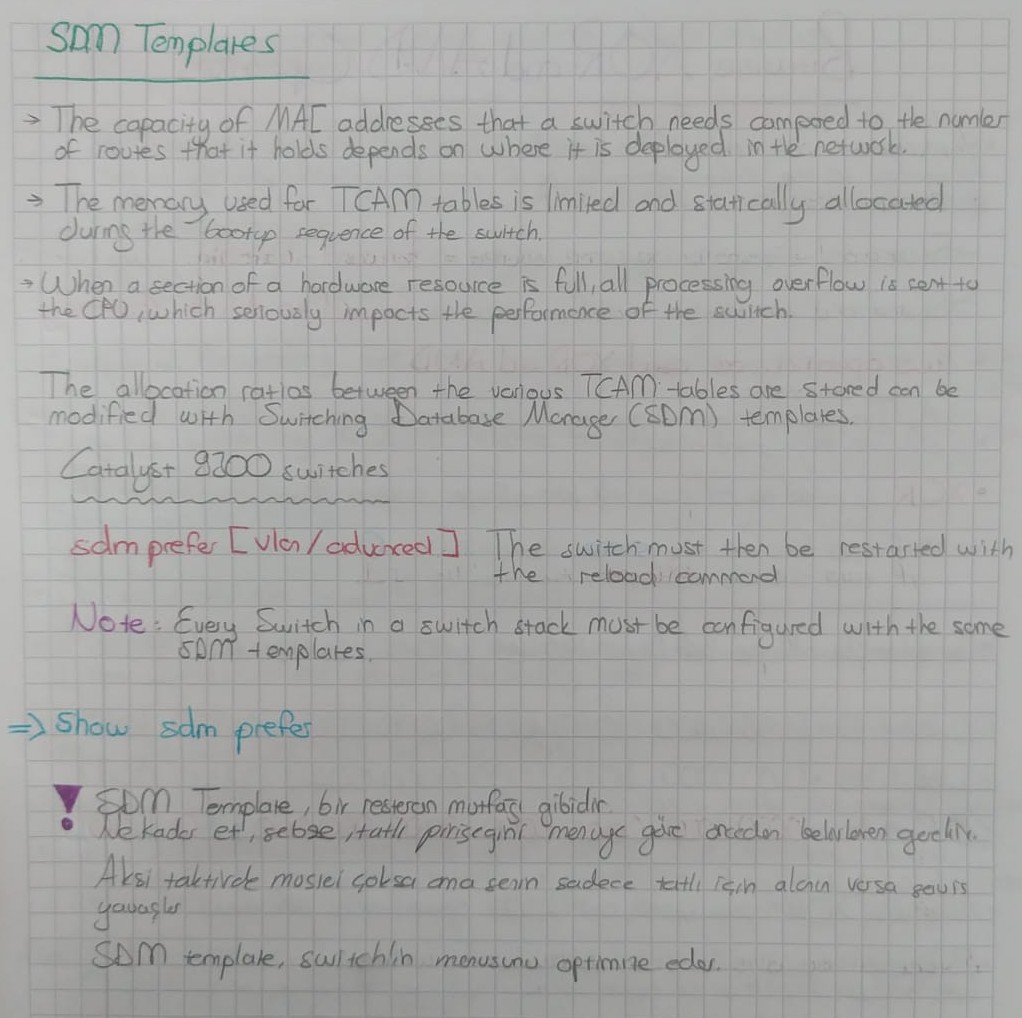 SDM Templates
→ The capacity of MAC addresses that a switch needs compared to the number
of routes that it holds depends on where it is deployed in the network.
→ The memory used for TCAM tables is limited and statically allocated
during the bootup sequence of the switch.
→ When a section of a hardware resource is full, all processing overflow is sent to
the CPU, which seriously impacts the performance of the switch.
The allocation ratios between the various TCAM tables are stored can be
modified with Switching Database Manager (SDM) templates.
Catalyst 9200 switches
sdm prefer [vlan/advanced] The switch must then be restarted with
the reload command
Note: Every Switch in a switch stack must be configured with the same
SDM templates.
⇒ Show sdm prefer
! SDM Template, bir restoran mutfağı gibidir.
Ne kadar et, sebze, tatlı pişiceğini menuye göre önceden belirlemen gerekir.
Aksi taktirde müşteri çoksa ama senin sadece tatlı için alanın varsa
yavaşlar
SDM template, switchin menusunu optimize eder.